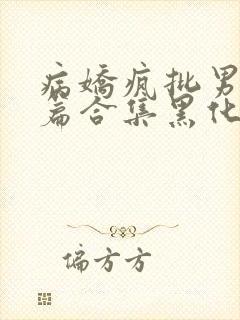 病娇疯批男
篇合集黑化
偏方方